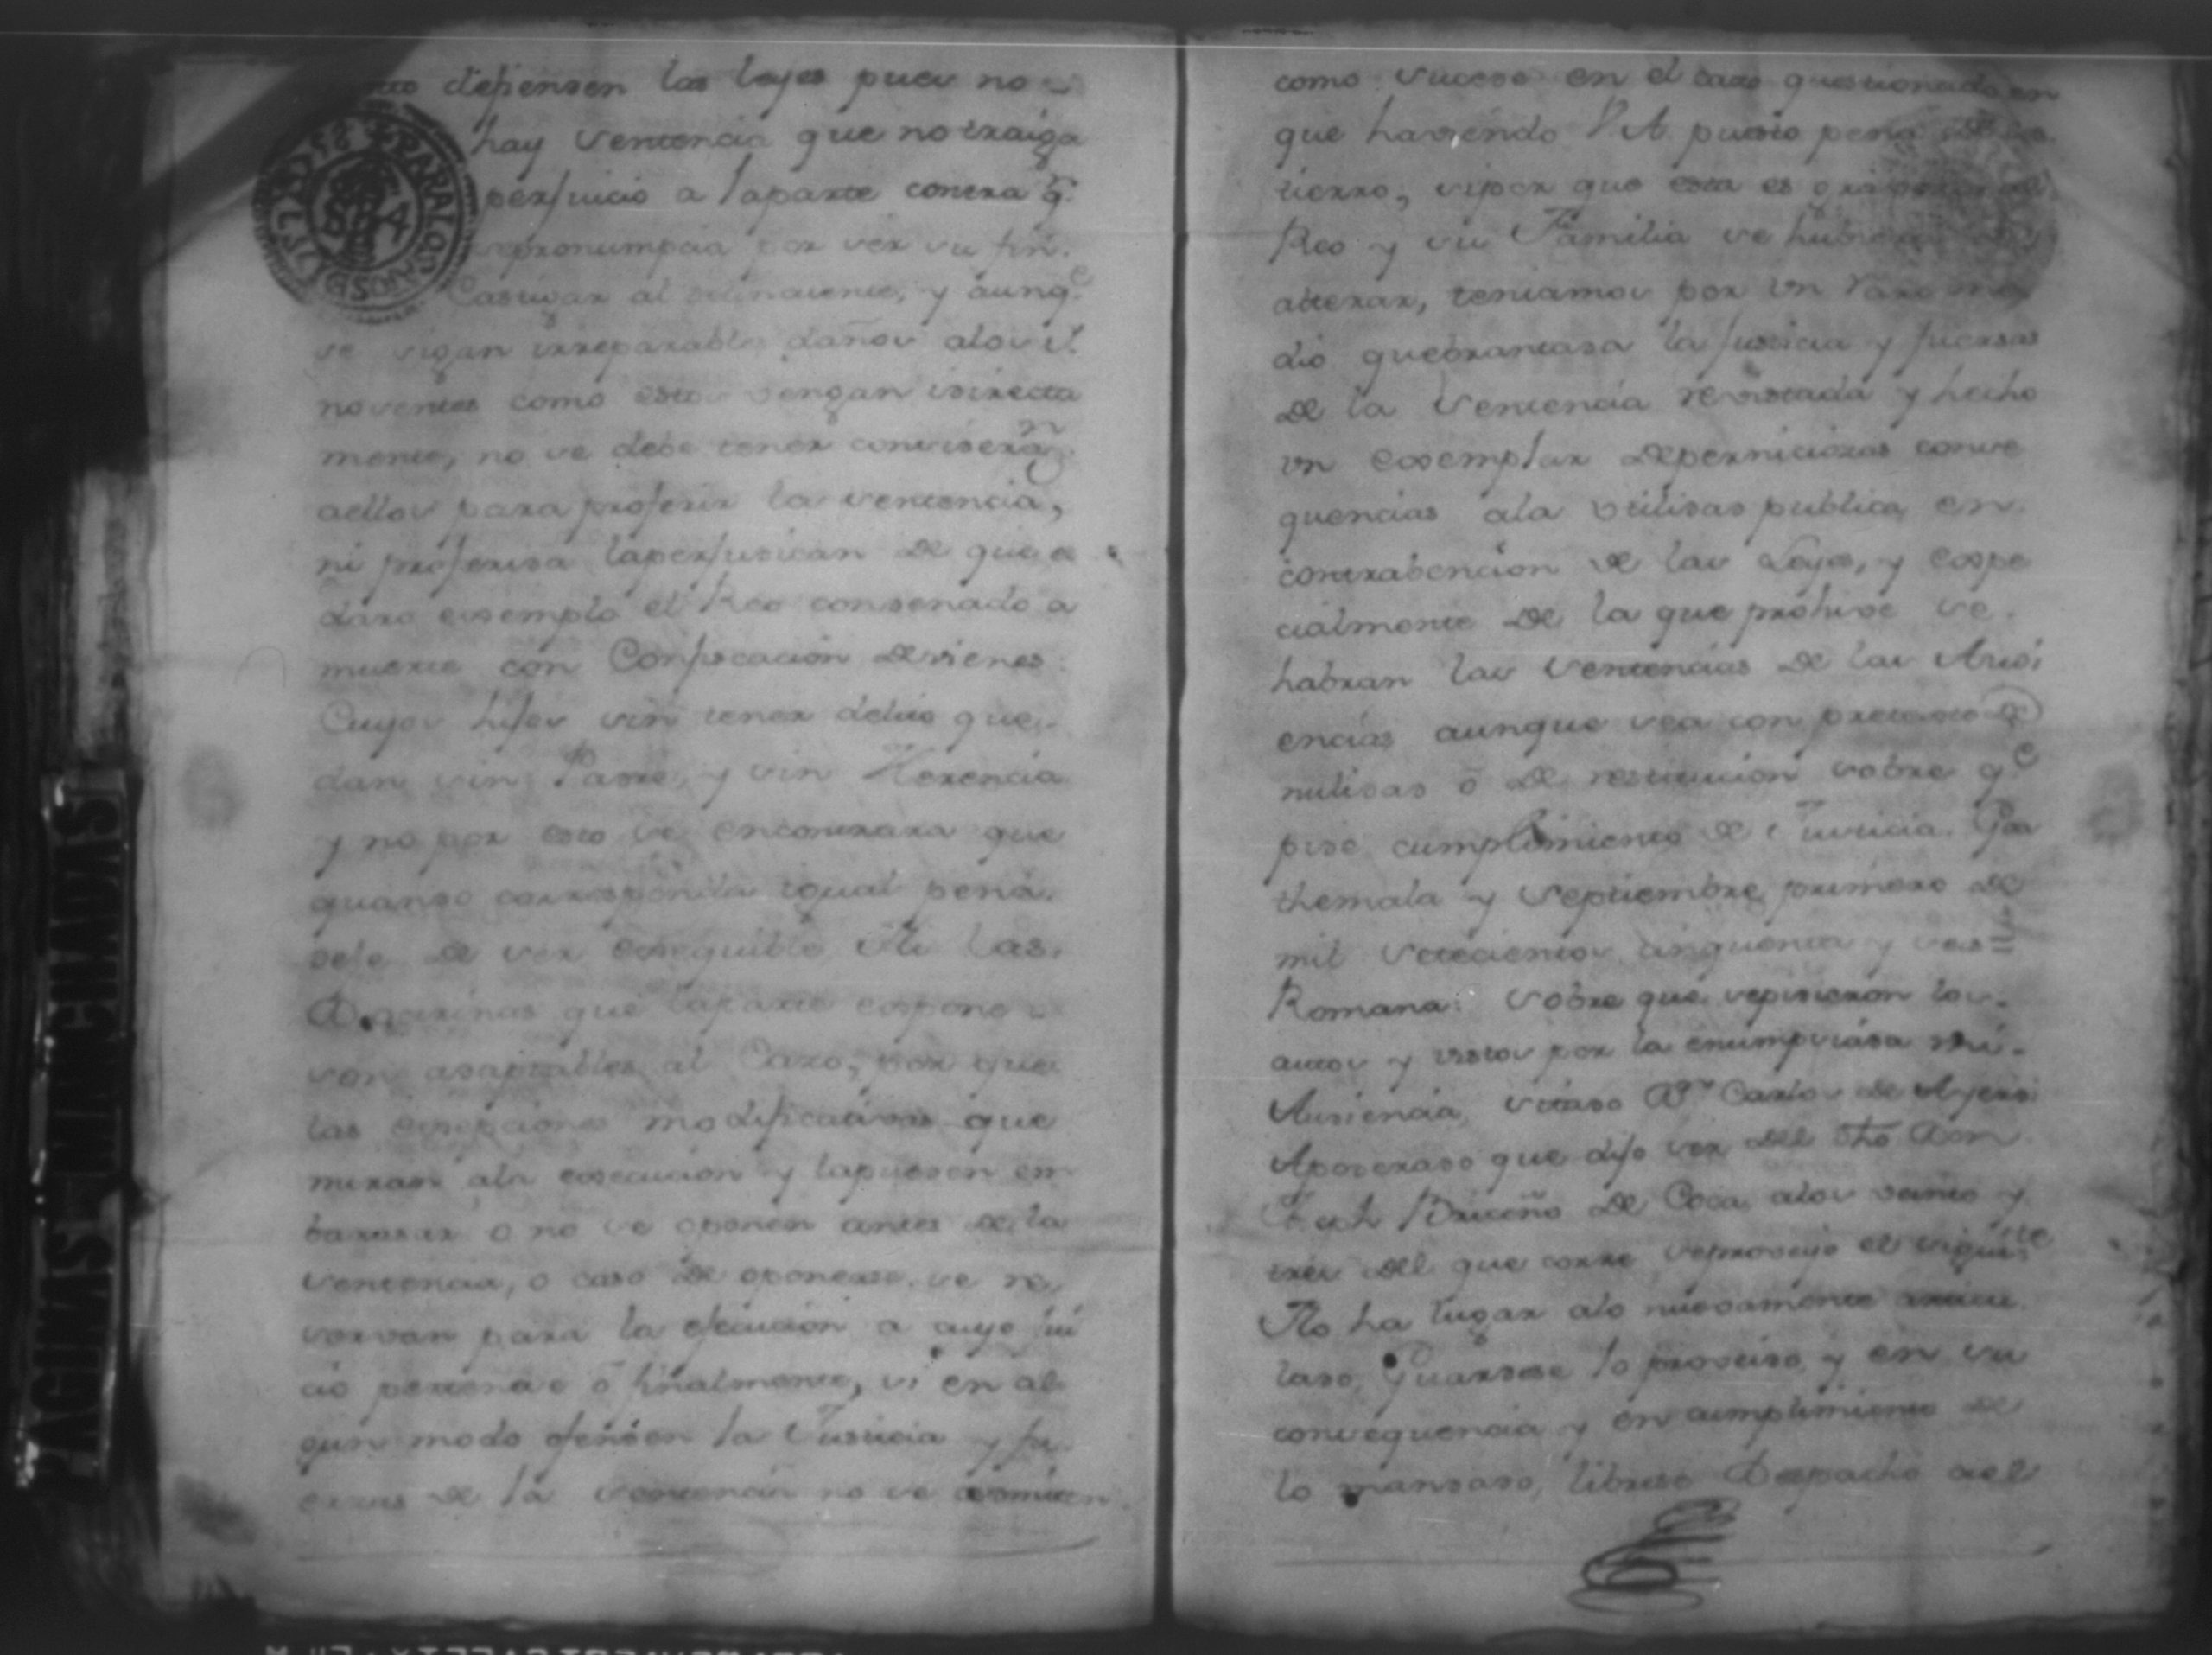 defiensen las leyes pues no
hay Sentencia que no traiga
perjuicio a laparte contra q.
se pronumpcia por ser su fin.
Castigar al delinquente, y aunq.e
se sigan irreparables daños alos il
nosentes como estos vengan isirecta
mente, no se debe tener consideraz.n
aellos para proferir la sentencia,
ni proferisa laperjusican de que es
claro exemplo el Reo consenado a
muerte con Confiscacion de vienes
Cuyos hijos sin tener delito que.
dan sin Pasre, y sin Herencia
y no por esto se encontrara que
quanso corresponda igual pena.
deje de ser exequible Ni las.
Doctrinas que laparte expone
son asaptables al Caso, por que
las excepciones modificativas que
miran ala execucion y lapuesen em
barasar o no se oponen antes de la
sentencia, o caso de oponerse se re
servan para la efecucion a cuyo jui
cio pertenece ō finalmente, si en al
gun modo ofensen la Justicia y fu
erzas de la sentencia no se asmiten
como sucese en el caso questionado en
que haviendo V.A. puesto pena de des
tierro, si por que esta es gravosa al
Reo y su Familia se hubiera de
alterar, teniamos por un raro me
dio quebrantasa la justicia y fuersas
de la Sentencia revistada y hecho
un exemplar de perniciozas conse
quencias ala utilisas publica en
contrabencion de las Leyes, y espe
cialmente de la que prohive se.
habran las Sentencias de las Ausi
encias aunque sea con pretexto de
nulisas ō de restitucion sobre q.e
pise cumplimiento de Justicia. Goa
themala y Septiembre primero de
mil setecientos cinquenta y seis =
Romana: Sobre que sepisieron los.
autos y vistos por la enumpciasa mi.
Ausiencia, sitaso D.n Carlos de Ayersi
Aposeraso que dijo ser del dho Don
Briceño de Coca alos veinte y
tres del que corre seproveyo el siguiente
No ha lugar alo nuevamente articu
laso, Guarsese lo proveiso, y en su
consequencia y en cumplimiento de
lo mansaso, librese Despacho ael